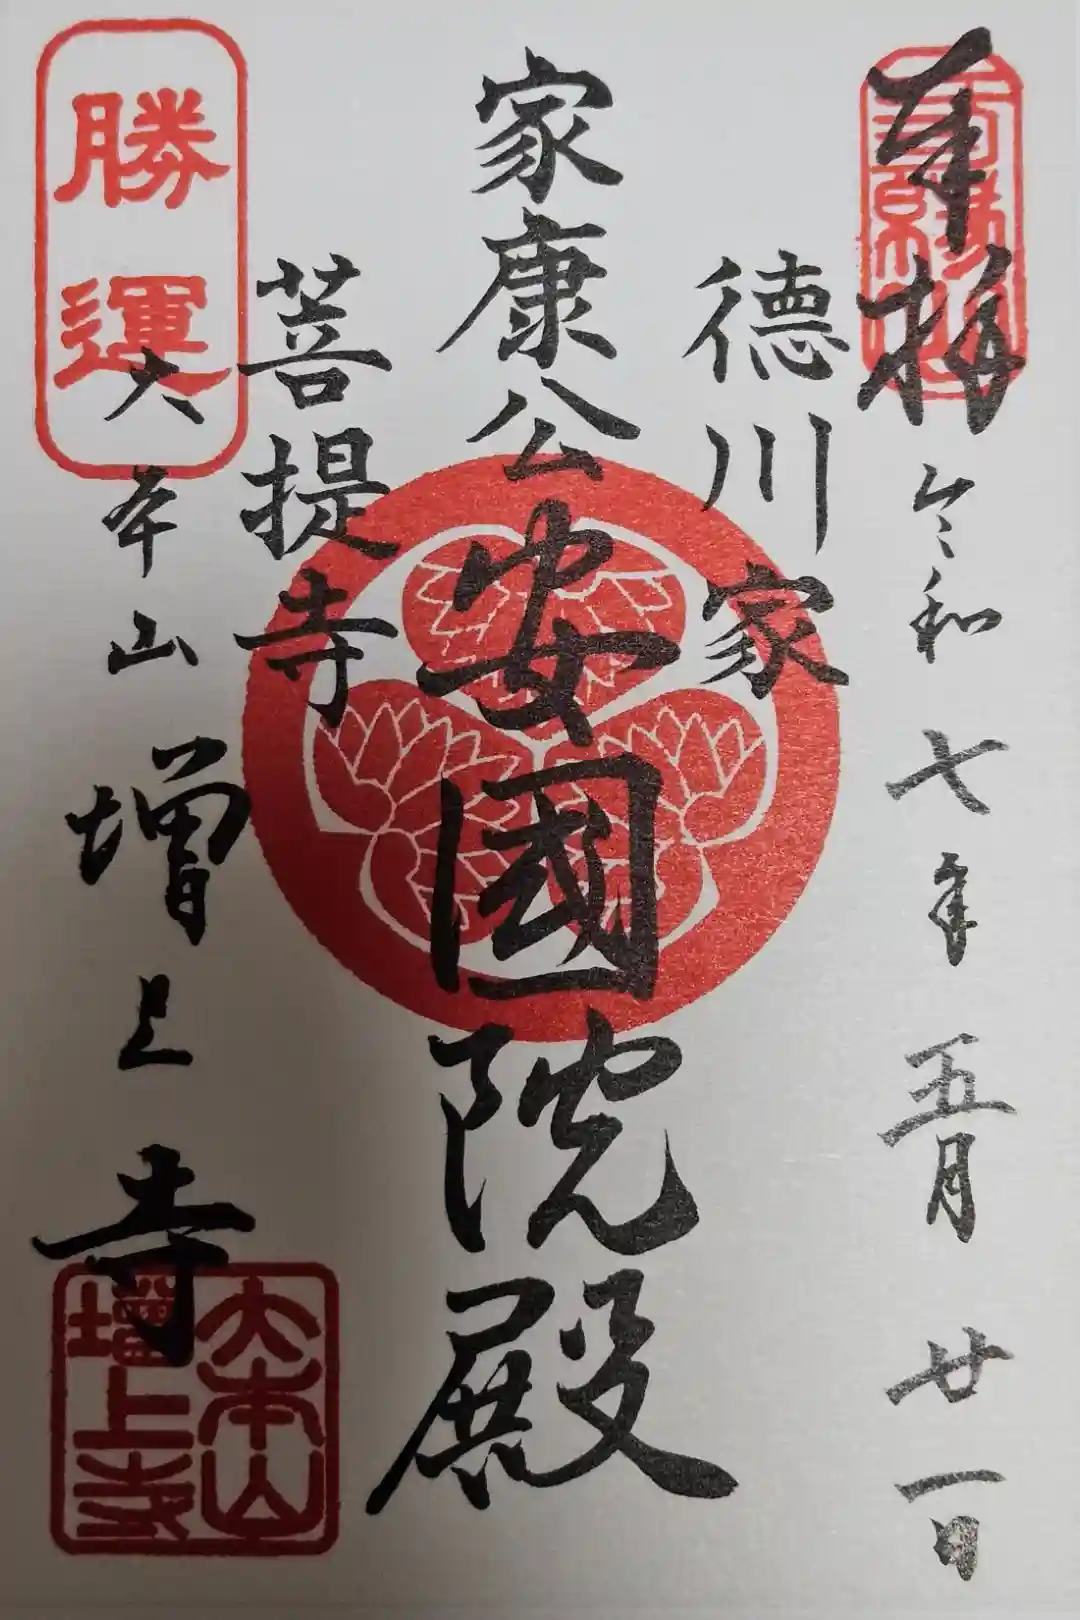 奉拝
令和七年五月廿一日
德川家
家康公
安國院殿
菩提寺
勝運
大本山
増上寺
大本山
増上寺